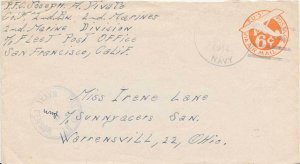 P.F.C. Joseph. A. Divuto
Co. F. 2nd. Bn. 2nd. Marines
2nd. Marine Division
c/o Fleet Post Office
San Francisco, Calif.
NAVY
AIR MAIL
6¢
Miss Irene Lane
c/o Sunnyacres San.
Warrensville, 22, Ohio.